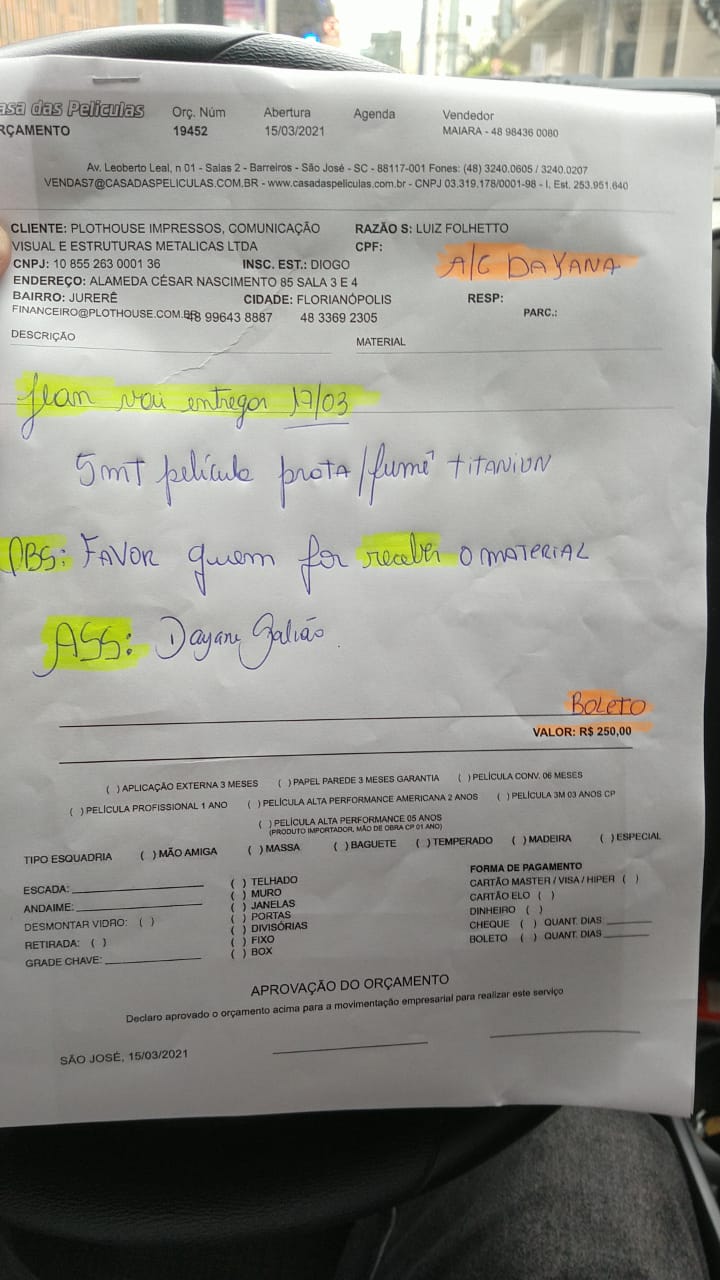 asa das Películas
RÇAMENTO
Orç. Núm
19452
Abertura
15/03/2021
Agenda
Vendedor
MAIARA - 48 98436 0080
Av. Leoberto Leal, n 01 - Salas 2 - Barreiros - São José - SC - 88117-001 Fones: (48) 3240.0605 / 3240.0207
VENDAS7@CASADASPELICULAS.COM.BR - www.casadaspeliculas.com.br - CNPJ 03.319.178/0001-98 - I. Est. 253.951.640
CLIENTE: PLOTHOUSE IMPRESSOS, COMUNICAÇÃO
VISUAL E ESTRUTURAS METALICAS LTDA
RAZÃO S: LUIZ FOLHETTO
CPF:
A/C DAYANA
CNPJ: 10 855 263 0001 36 INSC. EST.: DIOGO
ENDEREÇO: ALAMEDA CÉSAR NASCIMENTO 85 SALA 3 E 4
BAIRRO: JURERÊ CIDADE: FLORIANÓPOLIS RESP:
FINANCEIRO@PLOTHOUSE.COM.BR 48 99643 8887 48 3369 2305 PARC.:
DESCRIÇÃO MATERIAL
Jean vai entregar 17/03
5mt película prata/fumê TITANIUN
OBS: FAVOR quem for receber O MATERIAL
ASS: Dayane Galvão
BOLETO
VALOR: R$ 250,00
( ) APLICAÇÃO EXTERNA 3 MESES ( ) PAPEL PAREDE 3 MESES GARANTIA ( ) PELÍCULA CONV. 06 MESES
( ) PELÍCULA PROFISSIONAL 1 ANO ( ) PELÍCULA ALTA PERFORMANCE AMERICANA 2 ANOS ( ) PELÍCULA 3M 03 ANOS CP
( ) PELÍCULA ALTA PERFORMANCE 05 ANOS
(PRODUTO IMPORTADOR, MÃO DE OBRA CP 01 ANO)
TIPO ESQUADRIA ( ) MÃO AMIGA ( ) MASSA ( ) BAGUETE ( ) TEMPERADO ( ) MADEIRA ( ) ESPECIAL
ESCADA:
ANDAIME:
DESMONTAR VIDRO: ( )
RETIRADA: ( )
GRADE CHAVE:
( ) TELHADO
( ) MURO
( ) JANELAS
( ) PORTAS
( ) DIVISÓRIAS
( ) FIXO
( ) BOX
FORMA DE PAGAMENTO
CARTÃO MASTER / VISA / HIPER ( )
CARTÃO ELO ( )
DINHEIRO ( )
CHEQUE ( ) QUANT. DIAS
BOLETO ( ) QUANT. DIAS
APROVAÇÃO DO ORÇAMENTO
Declaro aprovado o orçamento acima para a movimentação empresarial para realizar este serviço
SÃO JOSÉ, 15/03/2021